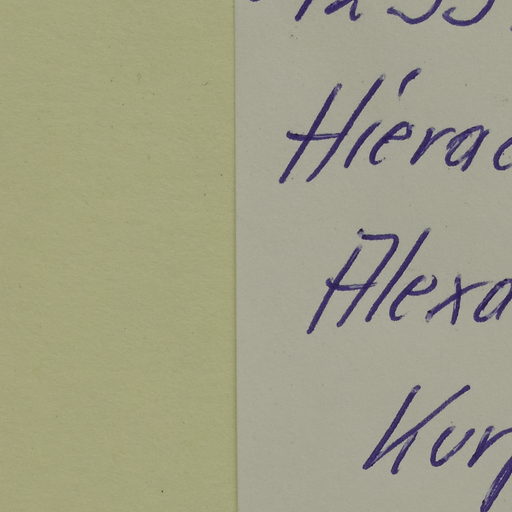 Hierac
Alexa
Kurp